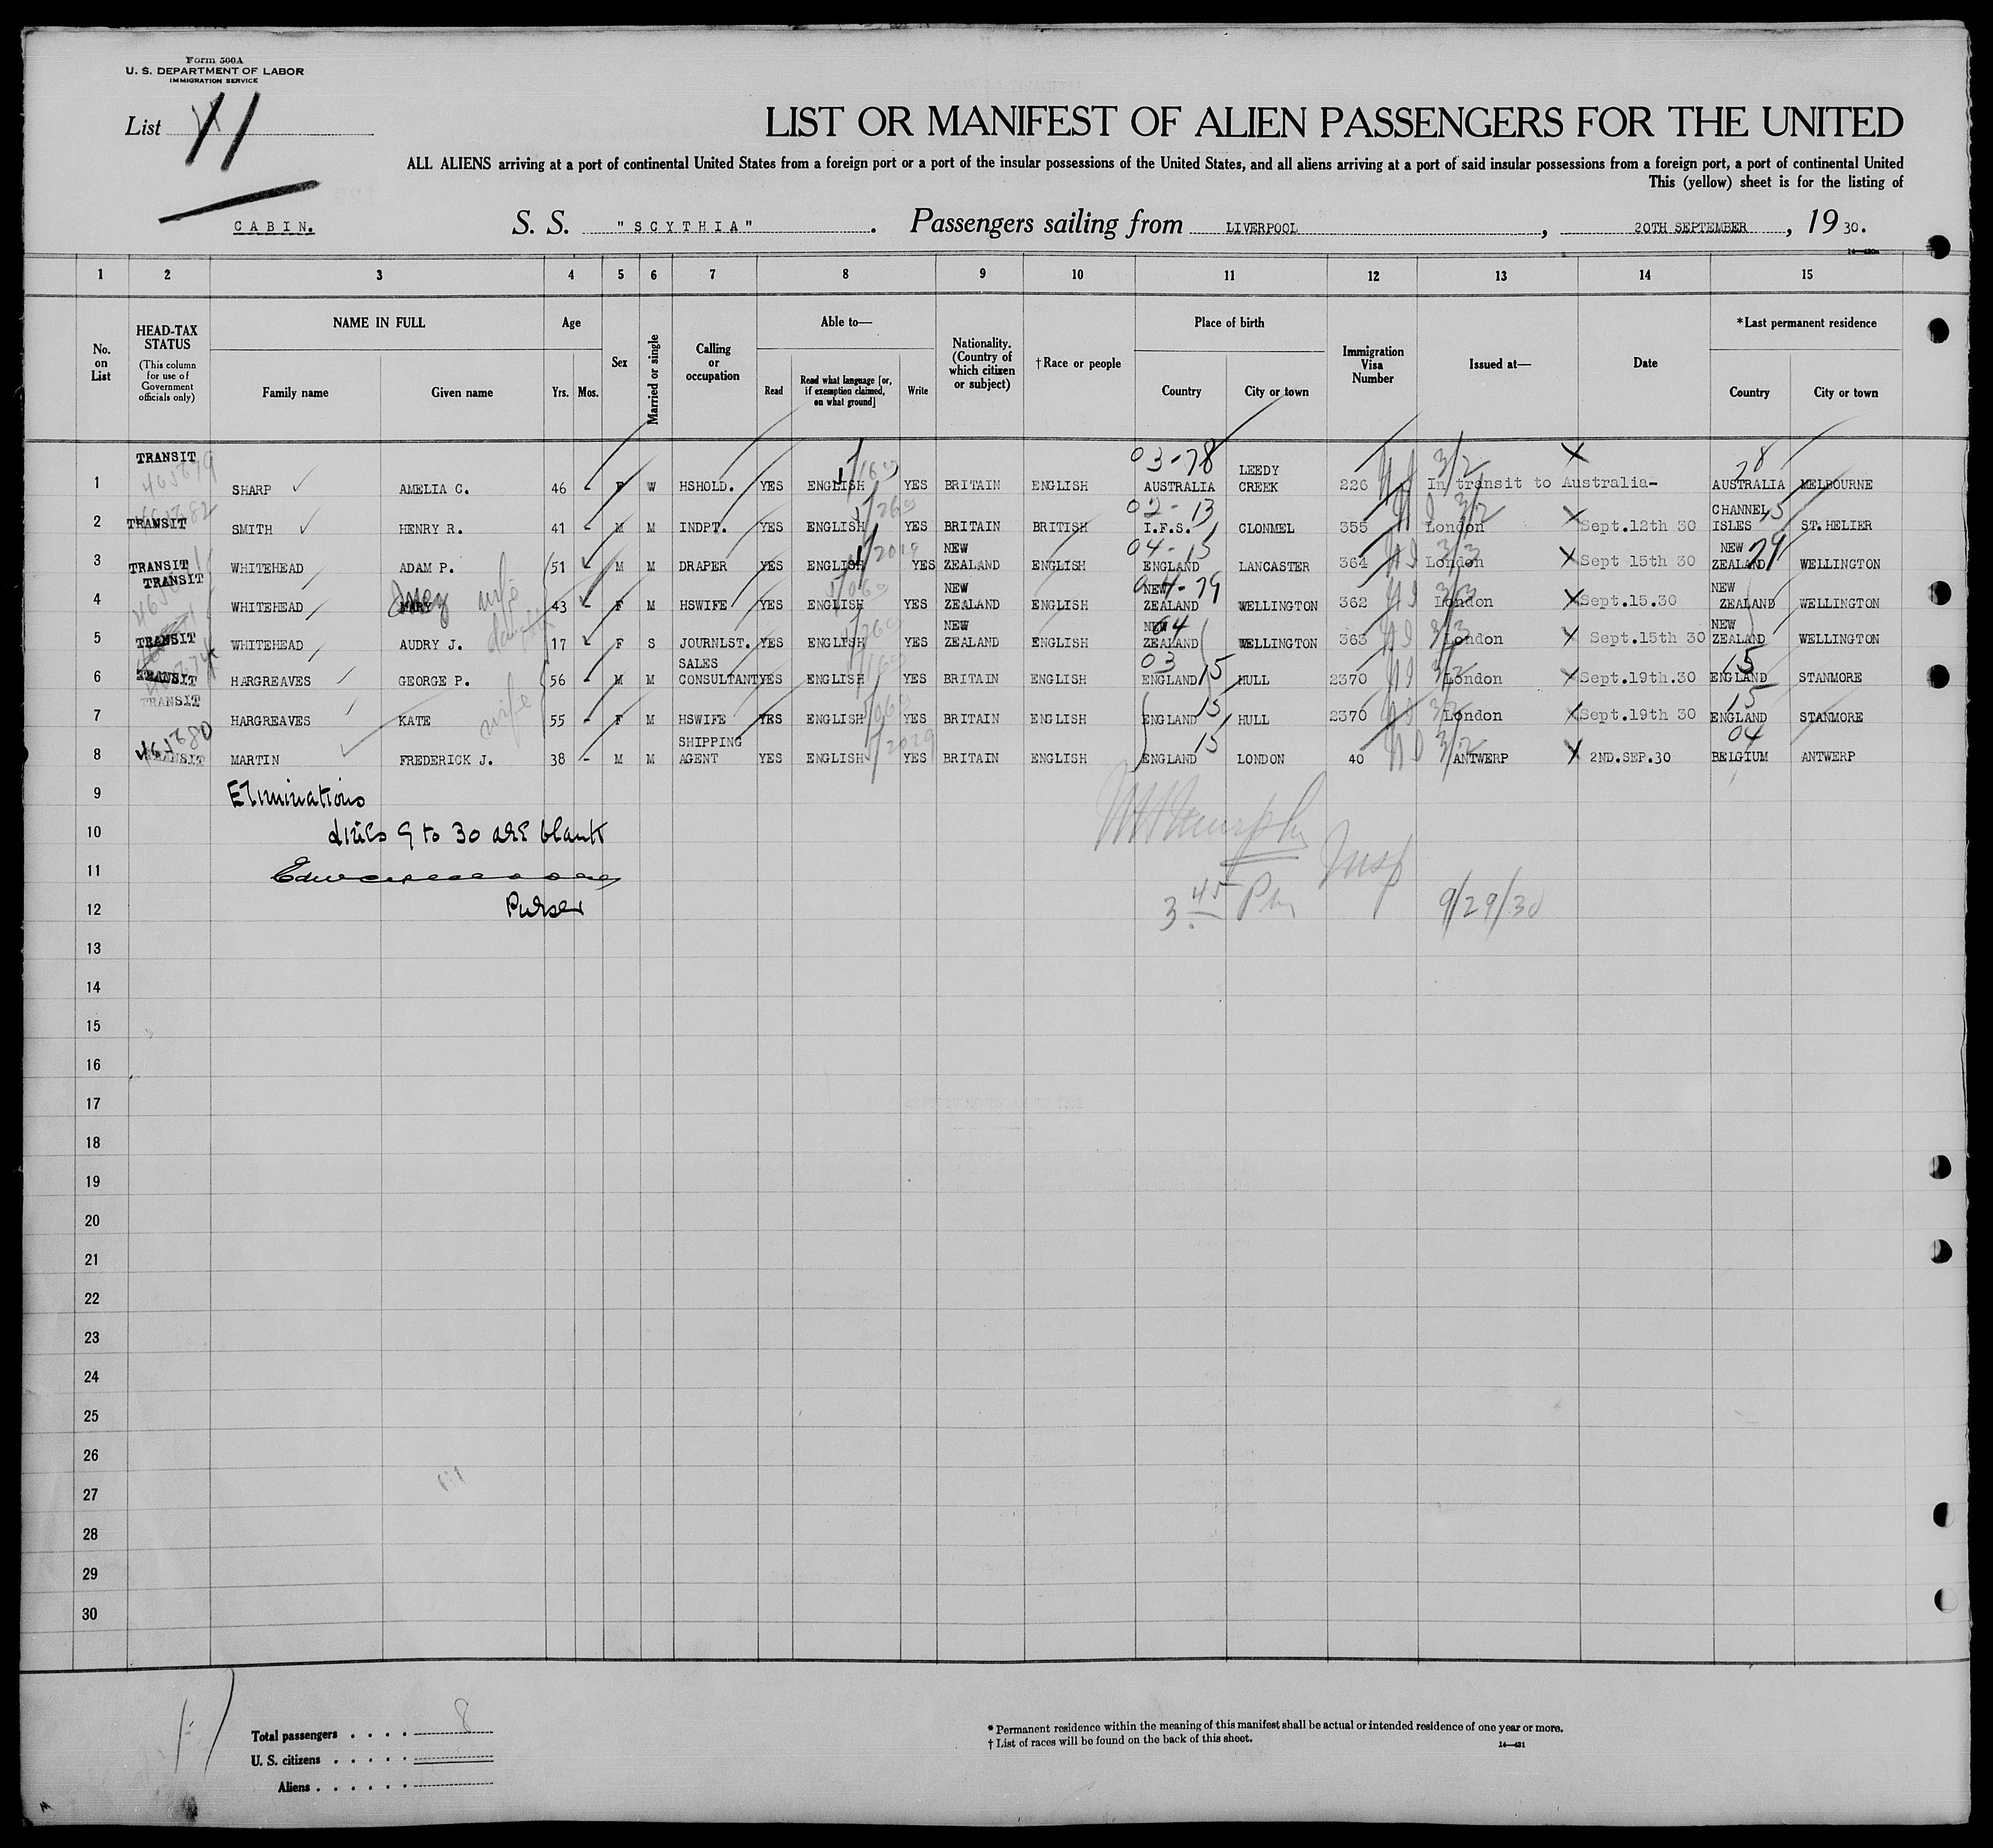 Form 500A
U. S. DEPARTMENT OF LABOR
IMMIGRATION SERVICE
List 11
LIST OR MANIFEST OF ALIEN PASSENGERS FOR THE UNITED
ALL ALIENS arriving at a port of continental United States from a foreign port or a port of the insular possessions of the United States, and all aliens arriving at a port of said insular possessions from a foreign port, a port of continental United
This (yellow) sheet is for the listing of
CABIN. S. S. "SCYTHIA". Passengers sailing from LIVERPOOL, 20TH SEPTEMBER, 19 30.
14—430a
1 2 3 4 5 6 7 8 9 10 11 12 13 14 15
No. on List
HEAD-TAX STATUS
(This column for use of Government officials only)
NAME IN FULL
Family name Given name
Age
Yrs. Mos.
Sex
Married or single
Calling or occupation
Able to—
Read Read what language [or, if exemption claimed, on what ground] Write
Nationality. (Country of which citizen or subject)
†Race or people
Place of birth
Country City or town
Immigration Visa Number
Issued at—
Date
*Last permanent residence
Country City or town
1 TRANSIT 465679 SHARP AMELIA C. 46 - F W HSHOLD. YES ENGLISH YES BRITAIN ENGLISH 03-78 AUSTRALIA LEEDY CREEK 226 3/2 In transit to Australia- 78 AUSTRALIA MELBOURNE
2 TRANSIT SMITH HENRY R. 41 - M M INDPT. YES ENGLISH YES BRITAIN BRITISH 02-13 I.F.S. CLONMEL 355 3/2 London Sept.12th 30 CHANNEL ISLES 15 ST. HELIER
3 TRANSIT WHITEHEAD ADAM P. 51 M M DRAPER YES ENGLISH YES NEW ZEALAND ENGLISH 04-15 ENGLAND LANCASTER 364 3/3 London Sept 15th 30 NEW ZEALAND 79 WELLINGTON
4 TRANSIT WHITEHEAD MARY Inez wife 43 - F M HSWIFE YES ENGLISH YES NEW ZEALAND ENGLISH 04-79 NEW ZEALAND WELLINGTON 362 3/3 London Sept.15.30 NEW ZEALAND WELLINGTON
5 TRANSIT WHITEHEAD AUDRY J. daughter 17 F S JOURNLST. YES ENGLISH YES NEW ZEALAND ENGLISH 04 NEW ZEALAND WELLINGTON 363 3/3 London Sept.15th 30 NEW ZEALAND WELLINGTON
6 TRANSIT HARGREAVES GEORGE P. 56 - M M SALES CONSULTANT YES ENGLISH YES BRITAIN ENGLISH 03 15 ENGLAND HULL 2370 3/2 London Sept.19th.30 15 ENGLAND STANMORE
7 TRANSIT HARGREAVES KATE wife 55 - F M HSWIFE YES ENGLISH YES BRITAIN ENGLISH 15 ENGLAND HULL 2370 3/2 London Sept.19th 30 15 ENGLAND STANMORE
8 465680 TRANSIT MARTIN FREDERICK J. 38 - M M SHIPPING AGENT YES ENGLISH YES BRITAIN ENGLISH 15 ENGLAND LONDON 40 3/2 ANTWERP 2ND.SEP.30 04 BELGIUM ANTWERP
9 Eliminations
10 lines 9 to 30 are blank
11
12 Purser
Murphy Insp
3 45 Pm 9/29/30
13
14
15
16
17
18
19
20
21
22
23
24
25
26
27
28
29
30
Total passengers . . . . 8
U. S. citizens . . . . .
Aliens . . . . . .
* Permanent residence within the meaning of this manifest shall be actual or intended residence of one year or more.
† List of races will be found on the back of this sheet.
14—431